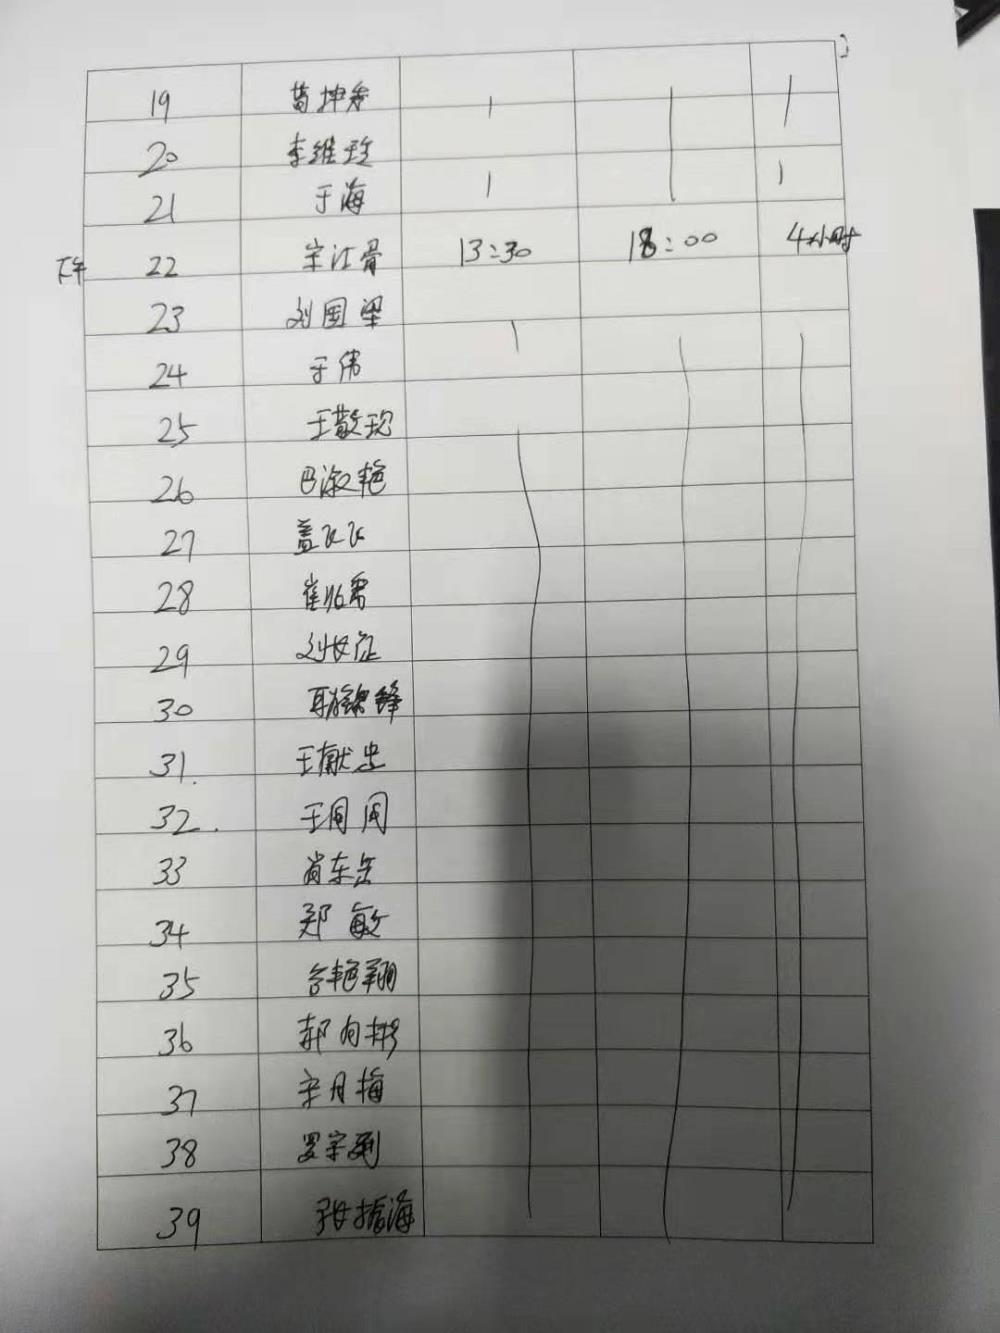 19
20 李维玲
21 于海
下午 22 宋江骨 13:30 18:00 4小时
23 刘国梁
24 于伟
25 王敬现
26 巴淑艳
27 盖飞飞
28 崔
29 刘长征
30 锋
31. 王献忠
32. 王周周
33 肖东岳
34 郑敏
35 台艳翔
36 郝向彬
37 宋月梅
38 罗宗利
39 张振海